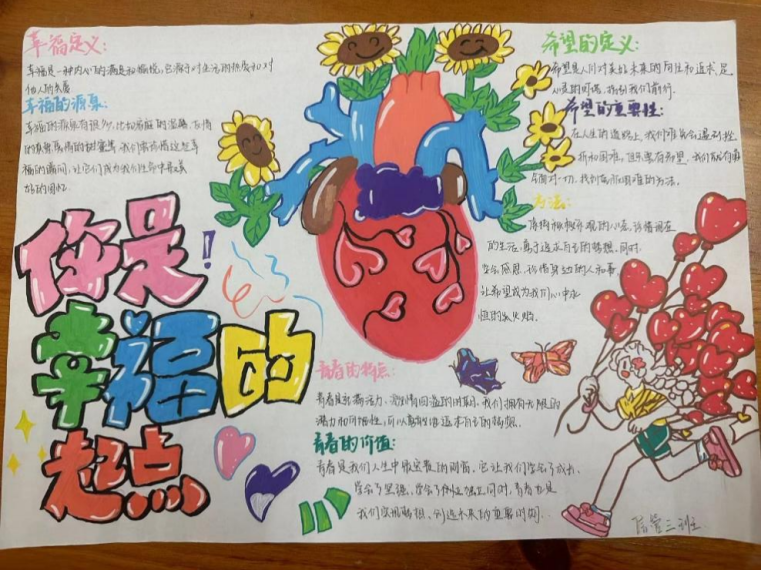 幸福定义:
幸福是一种内心的满足和愉悦,它源于对生活的热爱和对
他人的关爱
幸福的源泉:
幸福的源泉有很多,比如家庭的温暖、友情
的真挚、爱情的甜蜜等,我们常珍惜这些幸
福的瞬间,让它们成为我们生命中最美
好的回忆
你是!
幸福的
起点
希望的定义:
希望是人们对美好未来的向往和追求,是
心灵的灯塔,指引我们前行.
希望的重要性:
在人生的道路上,我们难免会遇到挫
折和困难,但只要有希望,我们就有勇
气面对一切,找到克服困难的方法.
方法:
保持积极乐观的心态,珍惜现在
的生活,勇于追求自己的梦想,同时,
学会感恩,珍惜身边的人和事,
让希望成为我们心中永
恒的火焰.
青春的特点:
青春是充满活力、激情回溢的时期,我们拥有无限的
潜力和可能性,可以勇敢地追求自己的梦想.
青春的价值:
青春是我们人生中最宝贵的财富,它让我们学会了成长、
学会了坚强、学会了,同时,青春也是
我们实现梦想,创造未来的重要时期.
三班